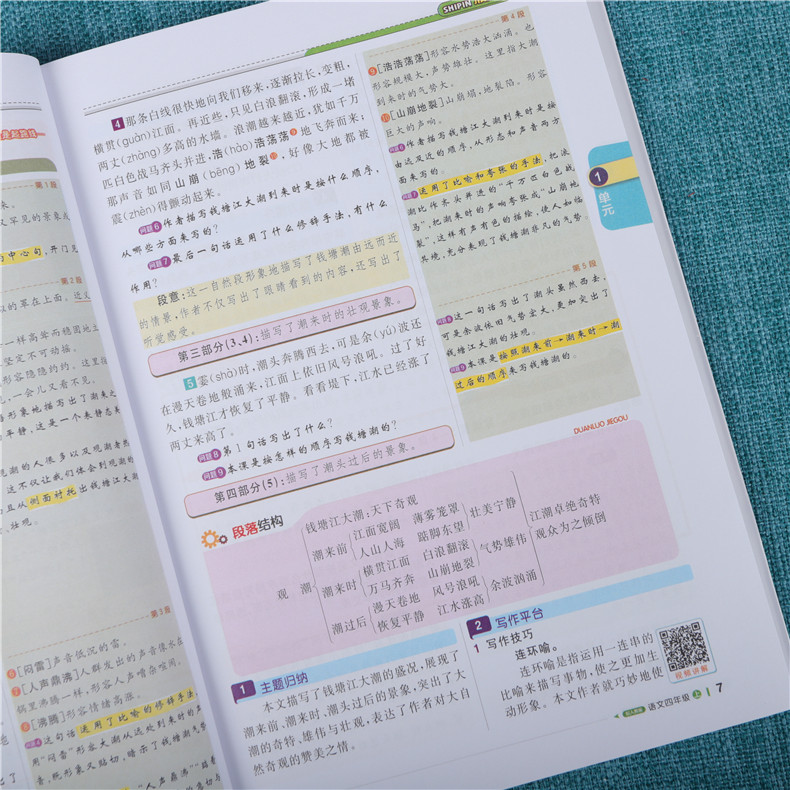 SHIPIN
4 那条白线很快地向我们移来,逐渐拉长,变粗,
横贯(guàn)江面。再近些,只见白浪翻滚,形成一堵
两丈(zhàng)多高的水墙。浪潮越来越近,犹如千万
匹白色战马齐头并进,浩(hào)浩荡荡⑨地飞奔而来;
那声音如同山崩(bēng)地裂⑩,好像大地都被
震(zhèn)得颤动起来。
问题6 作者描写钱塘江大潮到来时是按什么顺序,
从哪些方面来写的?
问题7 最后一句话运用了什么修辞手法,有什么
作用?
段意:这一自然段形象地描写了钱塘潮由远而近
的情景,作者不仅写出了眼睛看到的内容,还写出了
听觉感受。
第三部分(3、4):描写了潮来时的壮观景象。
5 霎(shà)时,潮头奔腾西去,可是余(yú)波还
在漫天卷地般涌来,江面上依旧风号浪吼。过了好
久,钱塘江才恢复了平静。看看堤下,江水已经涨了
两丈来高了。
问题8 第1句话写出了什么?
问题9 本课是按怎样的顺序写钱塘潮的?
第四部分(5):描写了潮头过后的景象。
第4段
⑨[浩浩荡荡]形容水势浩大汹涌。也
形容规模大,声势雄壮。这里指大潮
到来时的气势大。
⑩[山崩地裂]山崩塌,地裂陷。形容
巨大的声响。
问题6 作者描写钱塘江大潮到来时是按
由远及近的顺序,从形态和声音两方
面来写的。
问题7 运用了比喻和夸张的手法,把浪
潮比作齐头并进的“千万匹白色战
马”,把潮来时的声响夸张成“山崩地
裂”,这样有声有色的描绘,使人如临
其境,充分表现了钱塘潮非凡的气势。
第5段
问题8 这一句话写出了潮头虽然西去,
可是余波依旧气势宏大,更加突出了
钱塘江大潮的壮观。
问题9 本课是按照潮来前→潮来时→潮
过后的顺序来写钱塘潮的。
1
单元
DUANLUO JIEGOU
段落结构
观潮
钱塘江大潮:天下奇观
潮来前 江面宽阔 薄雾笼罩 壮美宁静
人山人海 踮脚东望
潮来时 横贯江面 白浪翻滚 气势雄伟
万马齐奔 山崩地裂
潮过后 漫天卷地 风号浪吼 余波汹涌
恢复平静 江水涨高
江潮卓绝奇特
观众为之倾倒
1 主题归纳
本文描写了钱塘江大潮的盛况,展现了
潮来前、潮来时、潮头过后的景象,突出了大
潮的奇特、雄伟与壮观,表达了作者对大自
然奇观的赞美之情。
2 写作平台
1 写作技巧
连环喻。
连环喻是指运用一连串的
比喻来描写事物,使之更加生
动形象。本文作者就巧妙地使
视频讲解
语文四年级 上 7
第1段
的中心句,开门见
第2段
似的罩在上面。
一样高学而稳固地
坚定不可动摇。
形容隐隐约约。这里指
,一会儿又看不见。
想潮的人很多以及观潮者
。这不仅让我们体会到观潮的
且从侧面衬托出钱塘江大潮
、壮观。
第3段
⑥[闷雷]声音低沉的雷。
⑦[人声鼎沸]人群发出的声音像水在
锅里沸腾一样,形容人声嘈杂喧闹。
⑧[沸腾]形容情绪高涨。